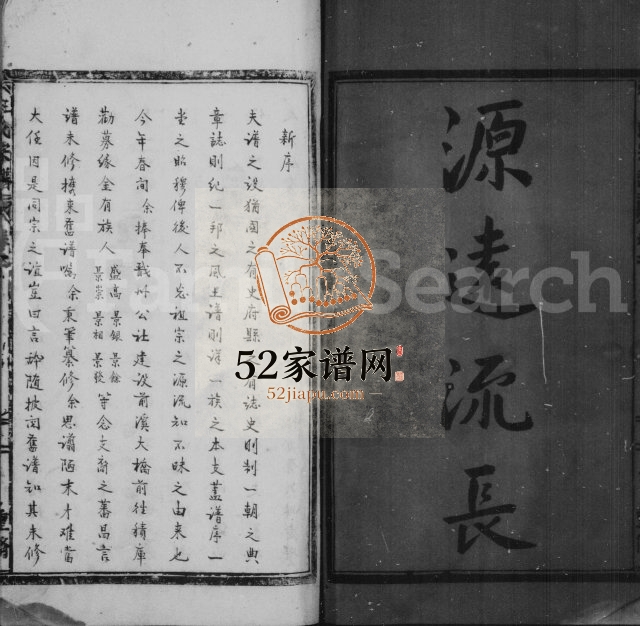 源遠流長
新序
夫譜之設猶國之有史府縣有誌史則制一朝之典
章誌則紀一邦文風土譜則詳一族之本支蓋譜序一
堂之昭穆俾後人不忘祖宗之源流知不昧之由來也
今年春間余捧奉戬州公社建設前溪大橋前往積庫
勸募緣金有族人盛高景銀景餘景崇景相景後等念支齡之蕃昌言
譜未修携來舊譜囑余秉筆纂修余思譾陋末才难當
大任因是同宗之誼豈曰言辞随披閱舊譜知其未修
52家谱网
52jiapu.com
Search